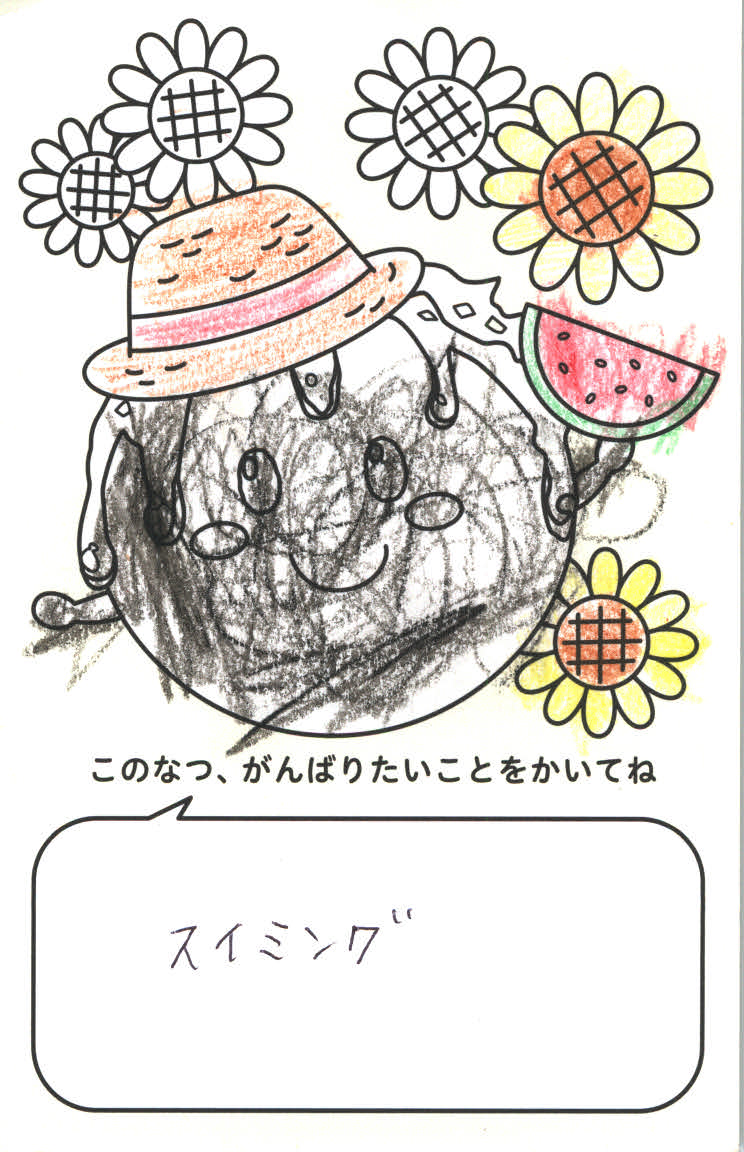 このなつ、がんばりたいことをかいてね
スイミング